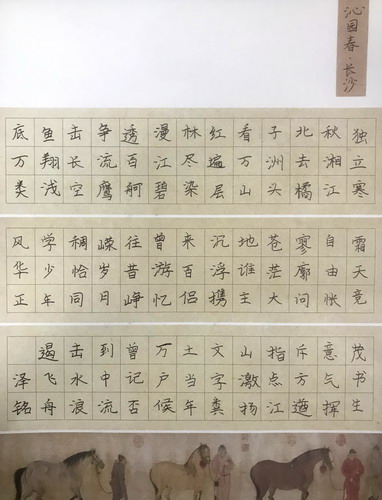 沁园春·长沙
独立寒
秋湘江
北去橘
子洲头
看万山
红遍层
林尽染
漫江碧
透百舸
争流鹰
击长空
鱼翔浅
底万类
霜天竞
自由怅
寥廓问
苍茫大
地谁主
沉浮携
来百侣
曾游忆
往昔峥
嵘岁月
稠恰同
学少年
风华正
茂书生
意气挥
斥方遒
指点江
山激扬
文字粪
土当年
万户侯
曾记否
到中流
击水浪
遏飞舟
泽铭